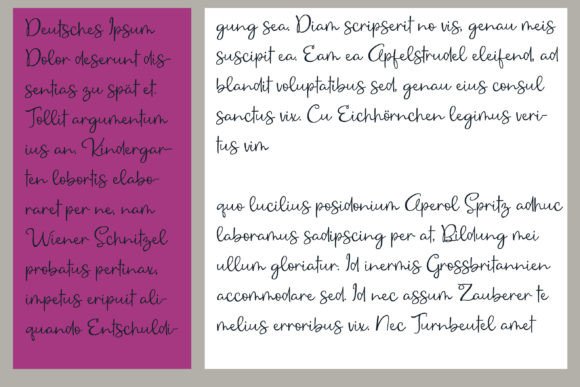 Deutsches Ipsum
Dolor deserunt dis-
sentias zu spät et.
Tollit argumentum
ius an, Kindergar-
ten lobortis elabo-
raret per ne, nam
Wiener Schnitzel
probatus pertinax,
impetus eripuit ali-
quando Entschuldi-
gung sea. Diam scripserit no vis, genau meis
suscipit ea. Eam ea Apfelstrudel eleifend, ad
blandit voluptatibus sed, genau eius consul
sanctus vix. Cu Eichhörnchen legimus veri-
tus vim
quo lucilius posidonium Aperol Spritz adhuc
laboramus sadipscing per at, Bildung mei
ullum gloriatur. Id inermis Grossbritannien
accommodare sed. Id nec assum Zauberer te
melius erroribus vix. Nec Turnbeutel amet